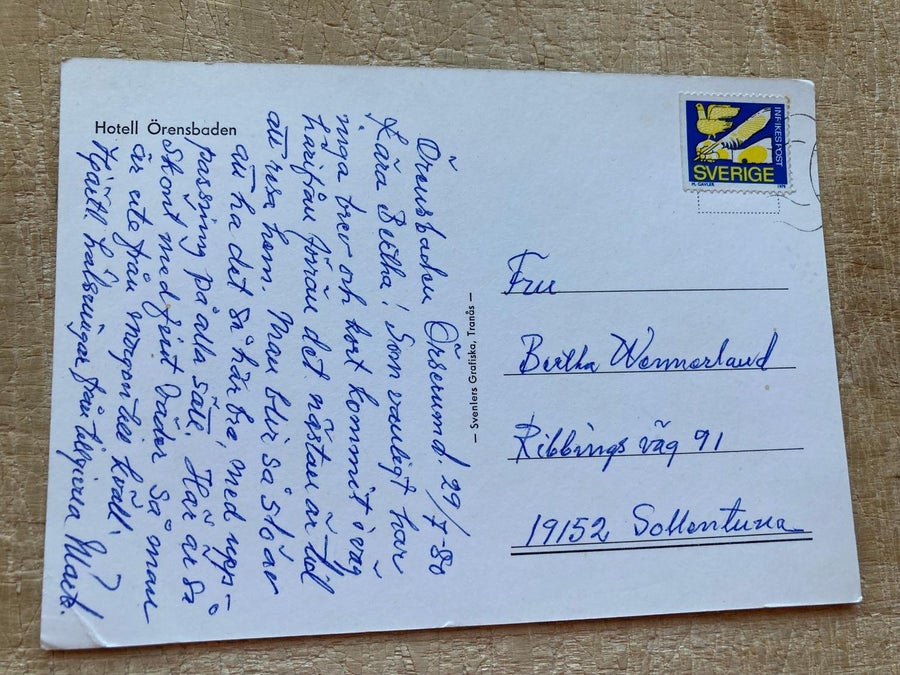 Hotell Örensbaden
Örensbaden Örserum d. 29/7-80
Kära Bertha! Som vanligt har
inga brev och kort kommit iväg
härifrån förrän det nästan är tid
att resa hem. Man blir så slö av
att ha det så här bra, med upp-
passning på alla sätt. Här är så
skönt med fint väder så man
är ute från morgon till kväll.
Hjärtl hälsningar från
— Svenlers Grafiska, Tranås —
INRIKESPOST
SVERIGE
Fru
Bertha Wennerlund
Ribbings väg 91
19152 Sollentuna